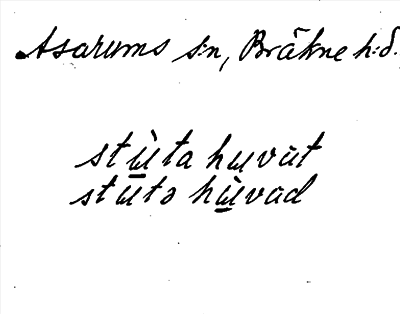 Asarums s:n, Bräkne h:d.
stɯ̲̀ta hɯvūt
stɯ̲tə hɯ̲̀vad